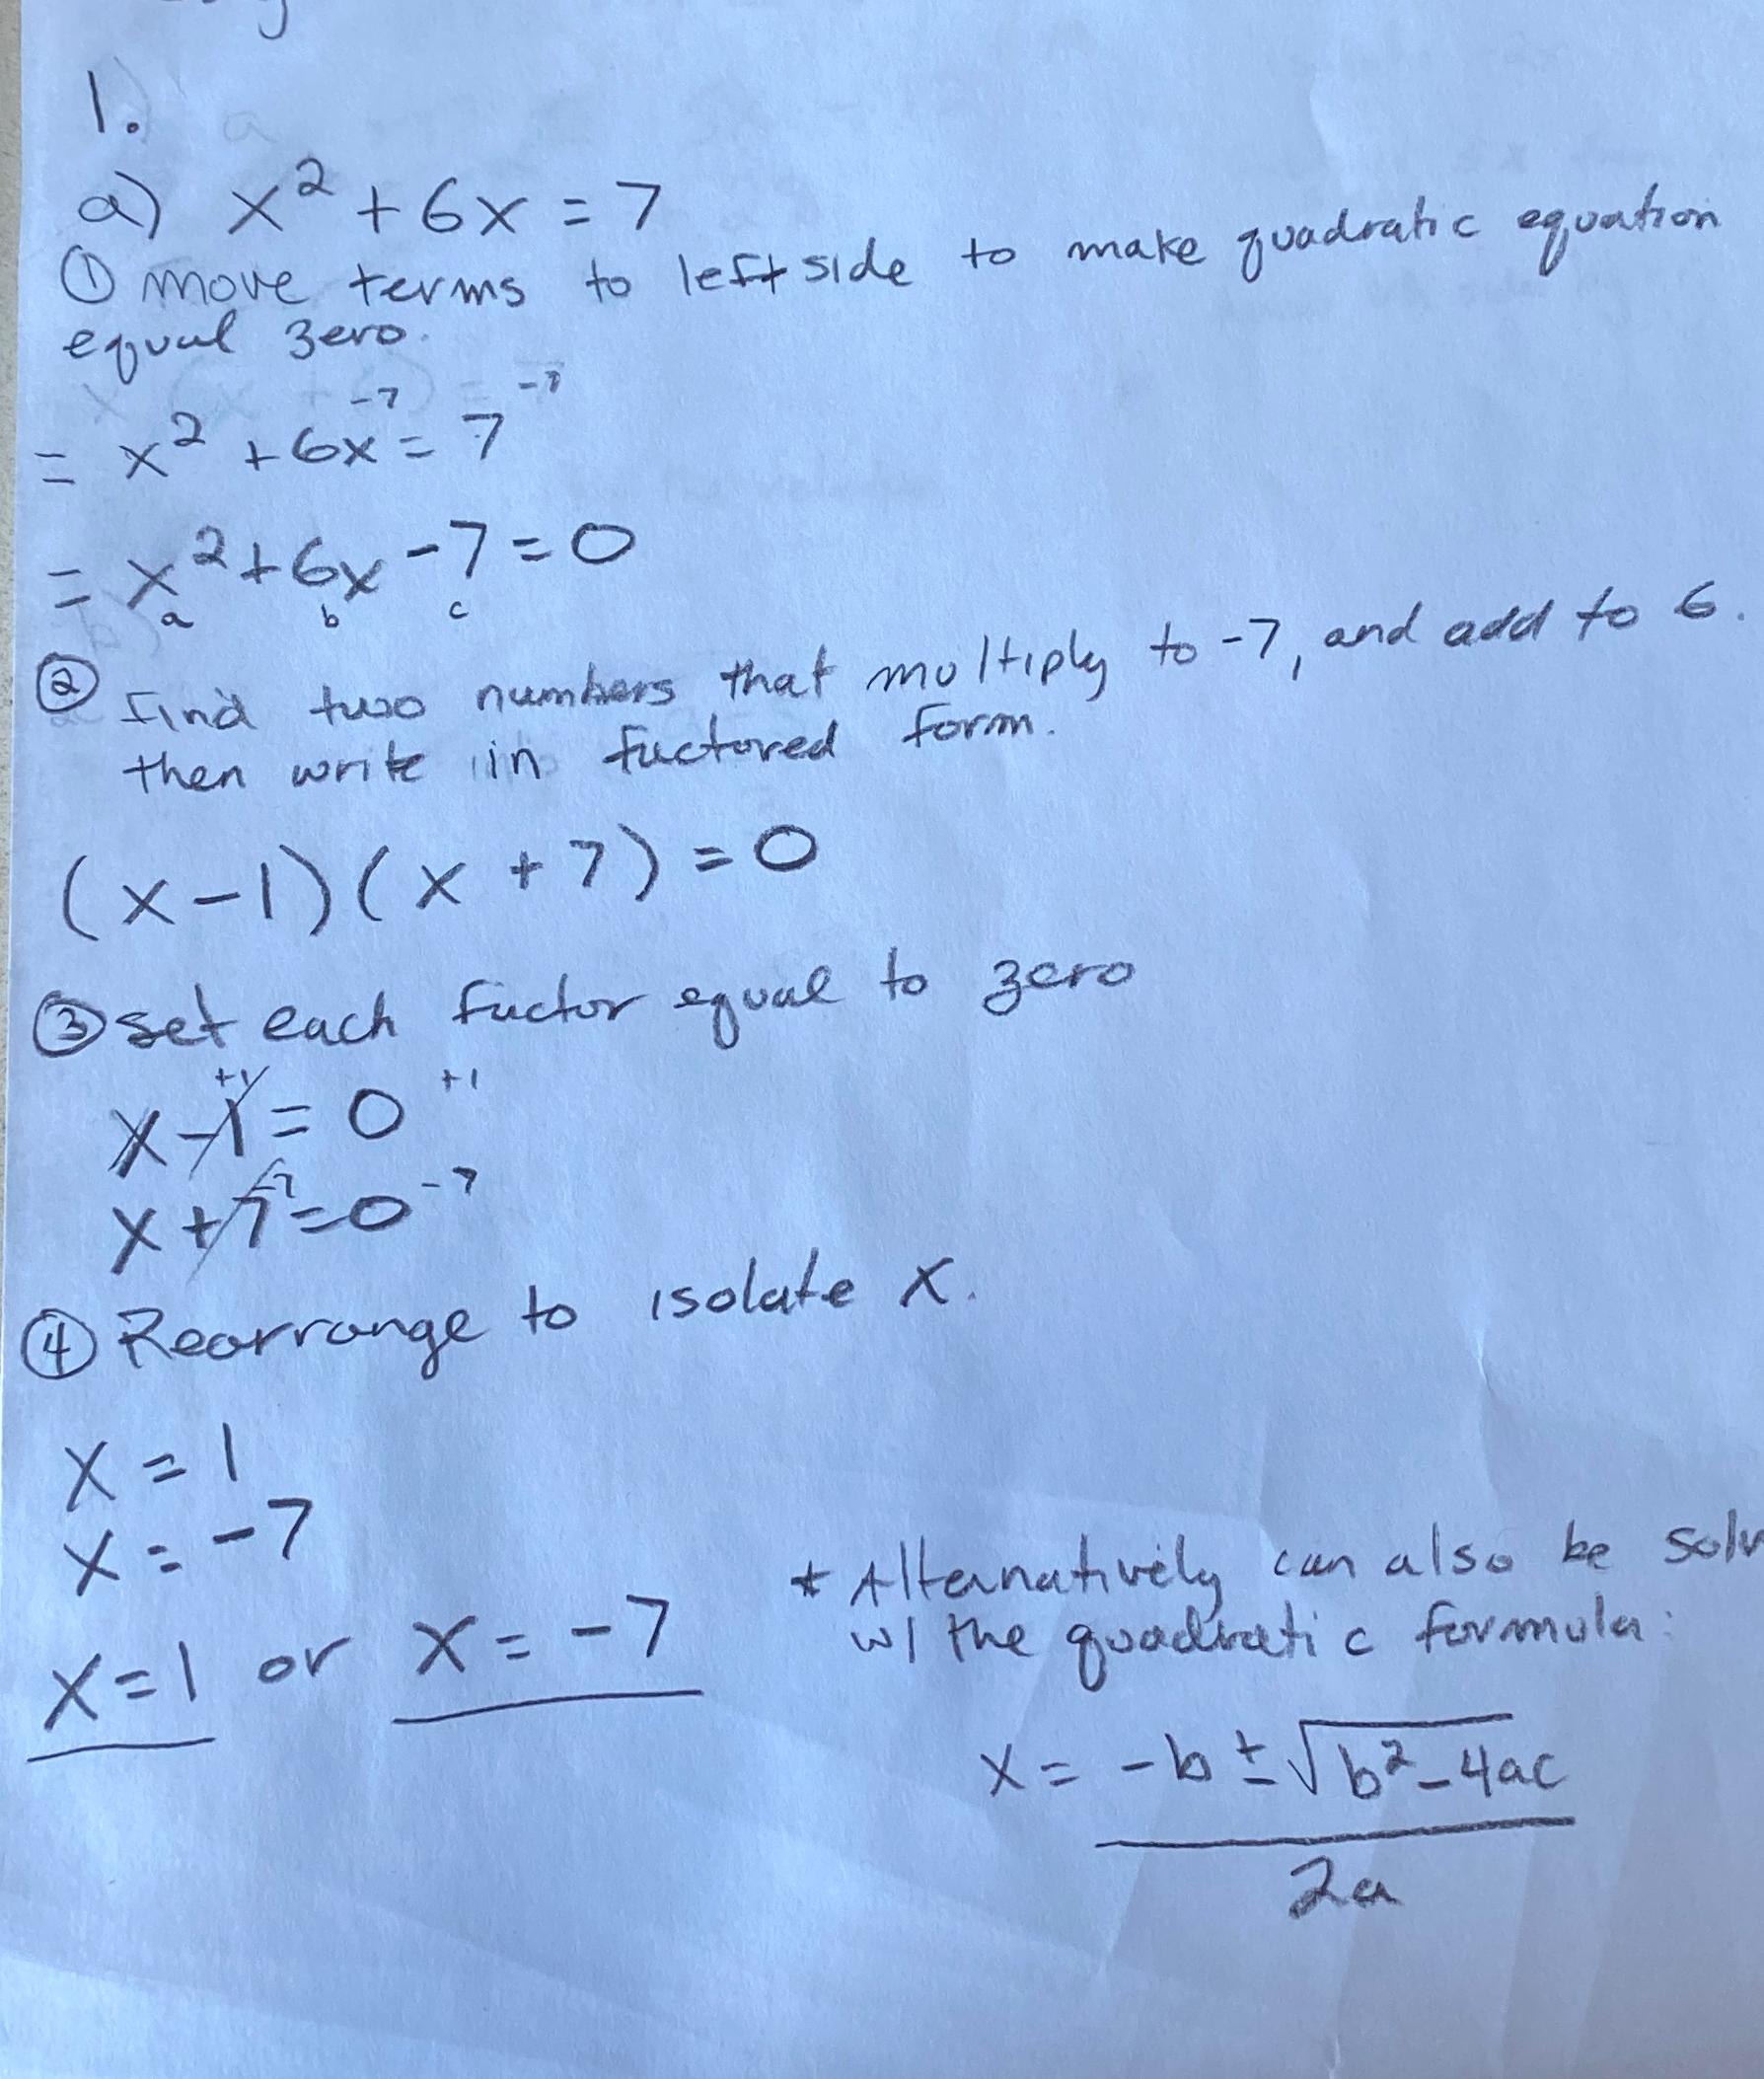 1.
a) x² + 6x = 7
① move terms to left side to make quadratic equation
equal zero.
-7 -7
= x² + 6x = 7
= x² + 6x - 7 = 0
a b c
② find two numbers that multiply to -7, and add to 6.
then write in factored form.
(x-1)(x+7)=0
③ set each factor equal to zero
+1 +1
x-1=0
-7 -7
x+7=0
④ Rearrange to isolate x.
x=1
x=-7
x=1 or x=-7
* Alternatively can also be solv
w/ the quadratic formula:
x= -b±√b²-4ac
2a